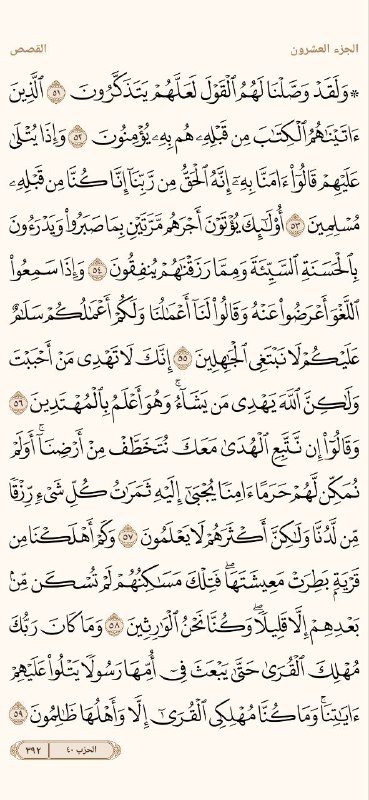 الجزء العشرون القصص
۞ وَلَقَدۡ وَصَّلۡنَا لَهُمُ ٱلۡقَوۡلَ لَعَلَّهُمۡ يَتَذَكَّرُونَ ٥١ ٱلَّذِينَ
ءَاتَيۡنَٰهُمُ ٱلۡكِتَٰبَ مِن قَبۡلِهِۦ هُم بِهِۦ يُؤۡمِنُونَ ٥٢ وَإِذَا يُتۡلَىٰ
عَلَيۡهِمۡ قَالُوٓاْ ءَامَنَّا بِهِۦٓ إِنَّهُ ٱلۡحَقُّ مِن رَّبِّنَآ إِنَّا كُنَّا مِن قَبۡلِهِۦ
مُسۡلِمِينَ ٥٣ أُوْلَٰٓئِكَ يُؤۡتَوۡنَ أَجۡرَهُم مَّرَّتَيۡنِ بِمَا صَبَرُواْ وَيَدۡرَءُونَ
بِٱلۡحَسَنَةِ ٱلسَّيِّئَةَ وَمِمَّا رَزَقۡنَٰهُمۡ يُنفِقُونَ ٥٤ وَإِذَا سَمِعُواْ
ٱللَّغۡوَ أَعۡرَضُواْ عَنۡهُ وَقَالُواْ لَنَآ أَعۡمَٰلُنَا وَلَكُمۡ أَعۡمَٰلُكُمۡ سَلَٰمٌ
عَلَيۡكُمۡ لَا نَبۡتَغِي ٱلۡجَٰهِلِينَ ٥٥ إِنَّكَ لَا تَهۡدِي مَنۡ أَحۡبَبۡتَ
وَلَٰكِنَّ ٱللَّهَ يَهۡدِي مَن يَشَآءُۚ وَهُوَ أَعۡلَمُ بِٱلۡمُهۡتَدِينَ ٥٦
وَقَالُوٓاْ إِن نَّتَّبِعِ ٱلۡهُدَىٰ مَعَكَ نُتَخَطَّفۡ مِنۡ أَرۡضِنَآۚ أَوَلَمۡ
نُمَكِّن لَّهُمۡ حَرَمًا ءَامِنٗا يُجۡبَىٰٓ إِلَيۡهِ ثَمَرَٰتُ كُلِّ شَيۡءٖ رِّزۡقٗا
مِّن لَّدُنَّا وَلَٰكِنَّ أَكۡثَرَهُمۡ لَا يَعۡلَمُونَ ٥٧ وَكَمۡ أَهۡلَكۡنَا مِن
قَرۡيَةِۭ بَطِرَتۡ مَعِيشَتَهَاۖ فَتِلۡكَ مَسَٰكِنُهُمۡ لَمۡ تُسۡكَن مِّنۢ
بَعۡدِهِمۡ إِلَّا قَلِيلٗاۖ وَكُنَّا نَحۡنُ ٱلۡوَٰرِثِينَ ٥٨ وَمَا كَانَ رَبُّكَ
مُهۡلِكَ ٱلۡقُرَىٰ حَتَّىٰ يَبۡعَثَ فِيٓ أُمِّهَا رَسُولٗا يَتۡلُواْ عَلَيۡهِمۡ
ءَايَٰتِنَاۚ وَمَا كُنَّا مُهۡلِكِي ٱلۡقُرَىٰٓ إِلَّا وَأَهۡلُهَا ظَٰلِمُونَ ٥٩
الحزب ٤٠ ٣٩٢